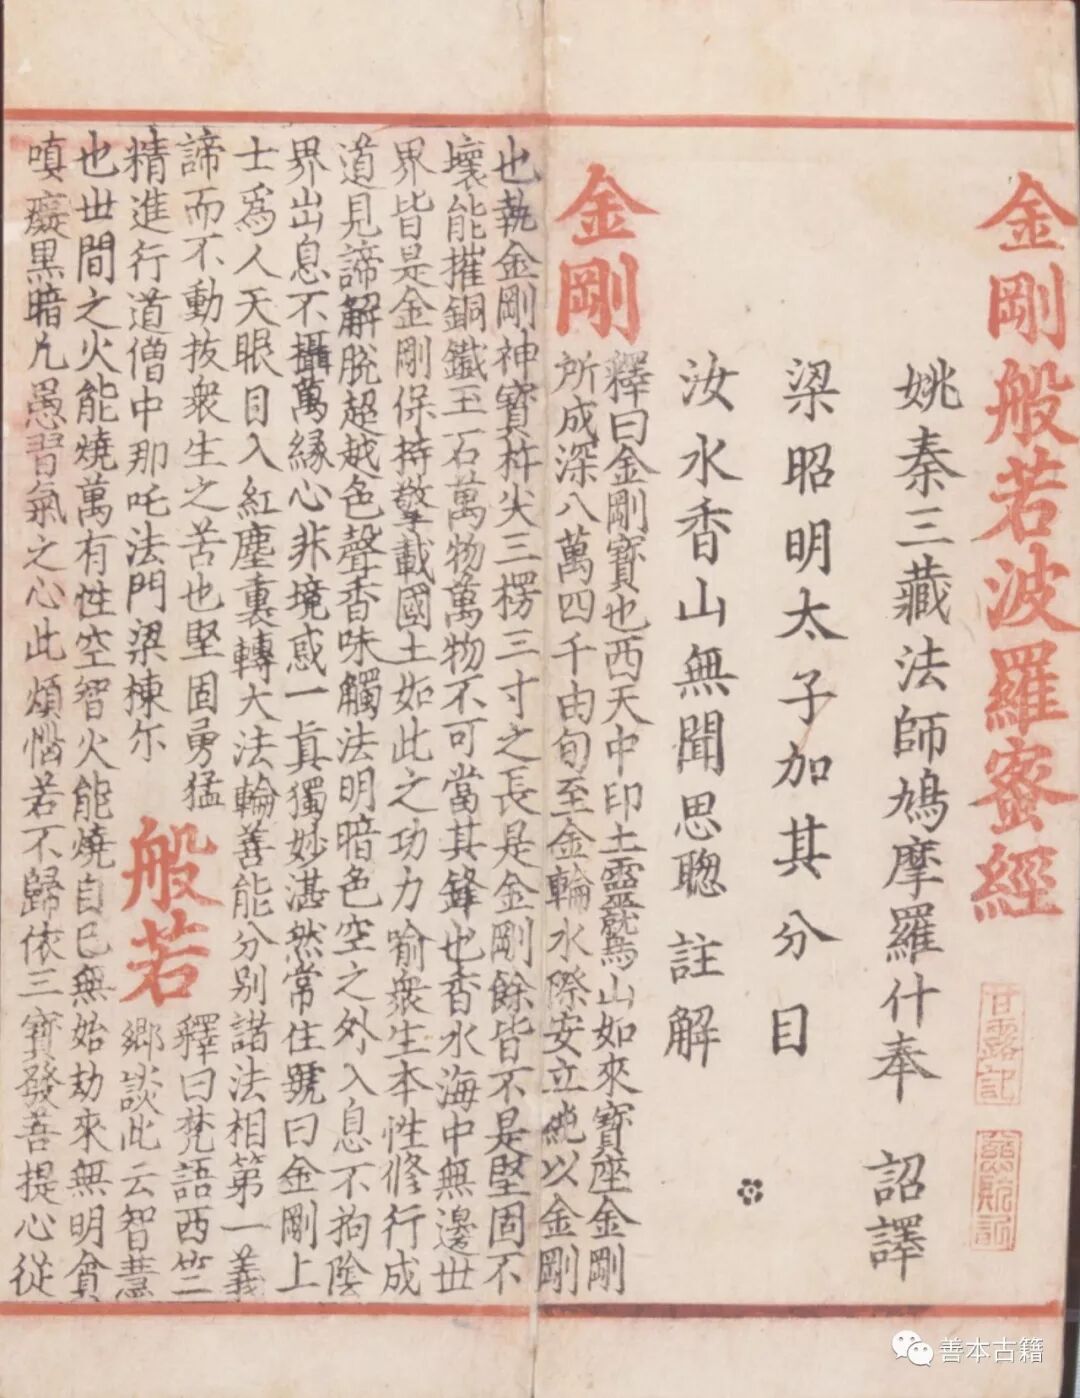 金剛般若波羅蜜經
甘露記
姚秦三藏法師鳩摩羅什奉 詔譯
梁昭明太子加其分目
汝水香山無聞思聰 註解
金剛
釋曰金剛寶也西天中印土靈鷲山如來寶座金剛
所成深八萬四千由旬至金輪水際安立純以金剛
也執金剛神寶杵尖三楞三寸之長是金剛餘皆不是堅固不
壞能摧銅鐵玉石萬物萬物不可當其鋒也香水海中無邊世
界皆是金剛保持擎載國土如此之功力喻衆生本性修行成
道見諦解脫超越色聲香味觸法明暗色空之外入息不拘陰
界出息不攝萬緣心非境惑一眞獨妙湛然常住號曰金剛上
士爲人天眼目入紅塵裏轉大法輪善能分別諸法相第一義
諦而不動拔衆生之苦也堅固勇猛
精進行道僧中那吒法門梁棟尔
般若
釋曰梵語西竺
鄉談此云智慧
也世間之火能燒萬有性空智火能燒自己無始劫來無明貪
嗔癡黑暗凢愚習氣之心此煩惱若不歸依三寶發菩提心從
善本古籍